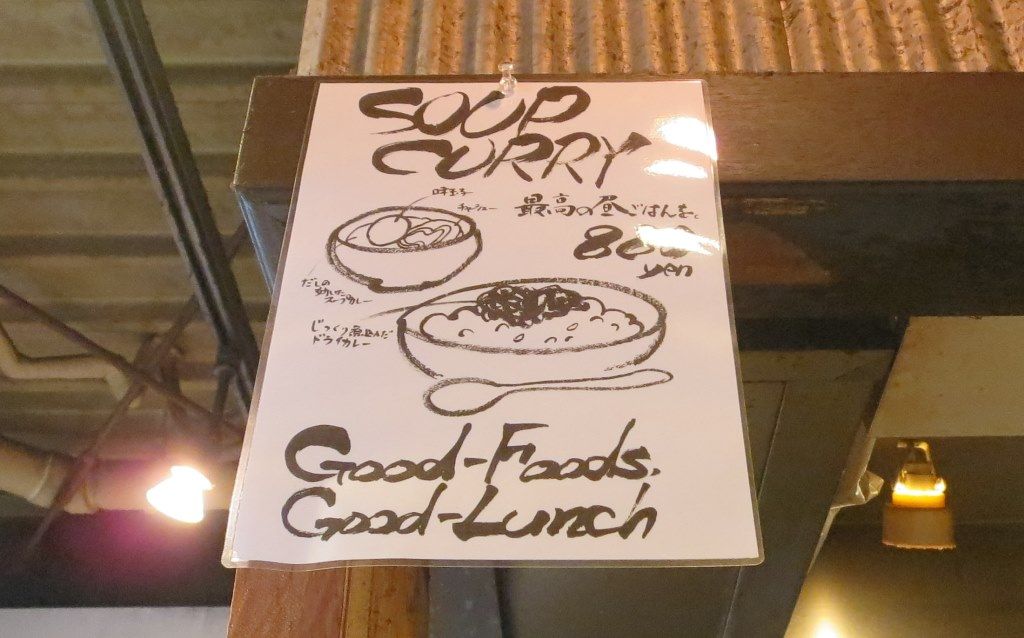 SOUP
CURRY
味玉子
チャーシュー
最高の昼ごはんを。
800
yen
だしの
効いた
スープカレー
じっくり煮込んだ
ドライカレー
Good-Foods.
Good-Lunch